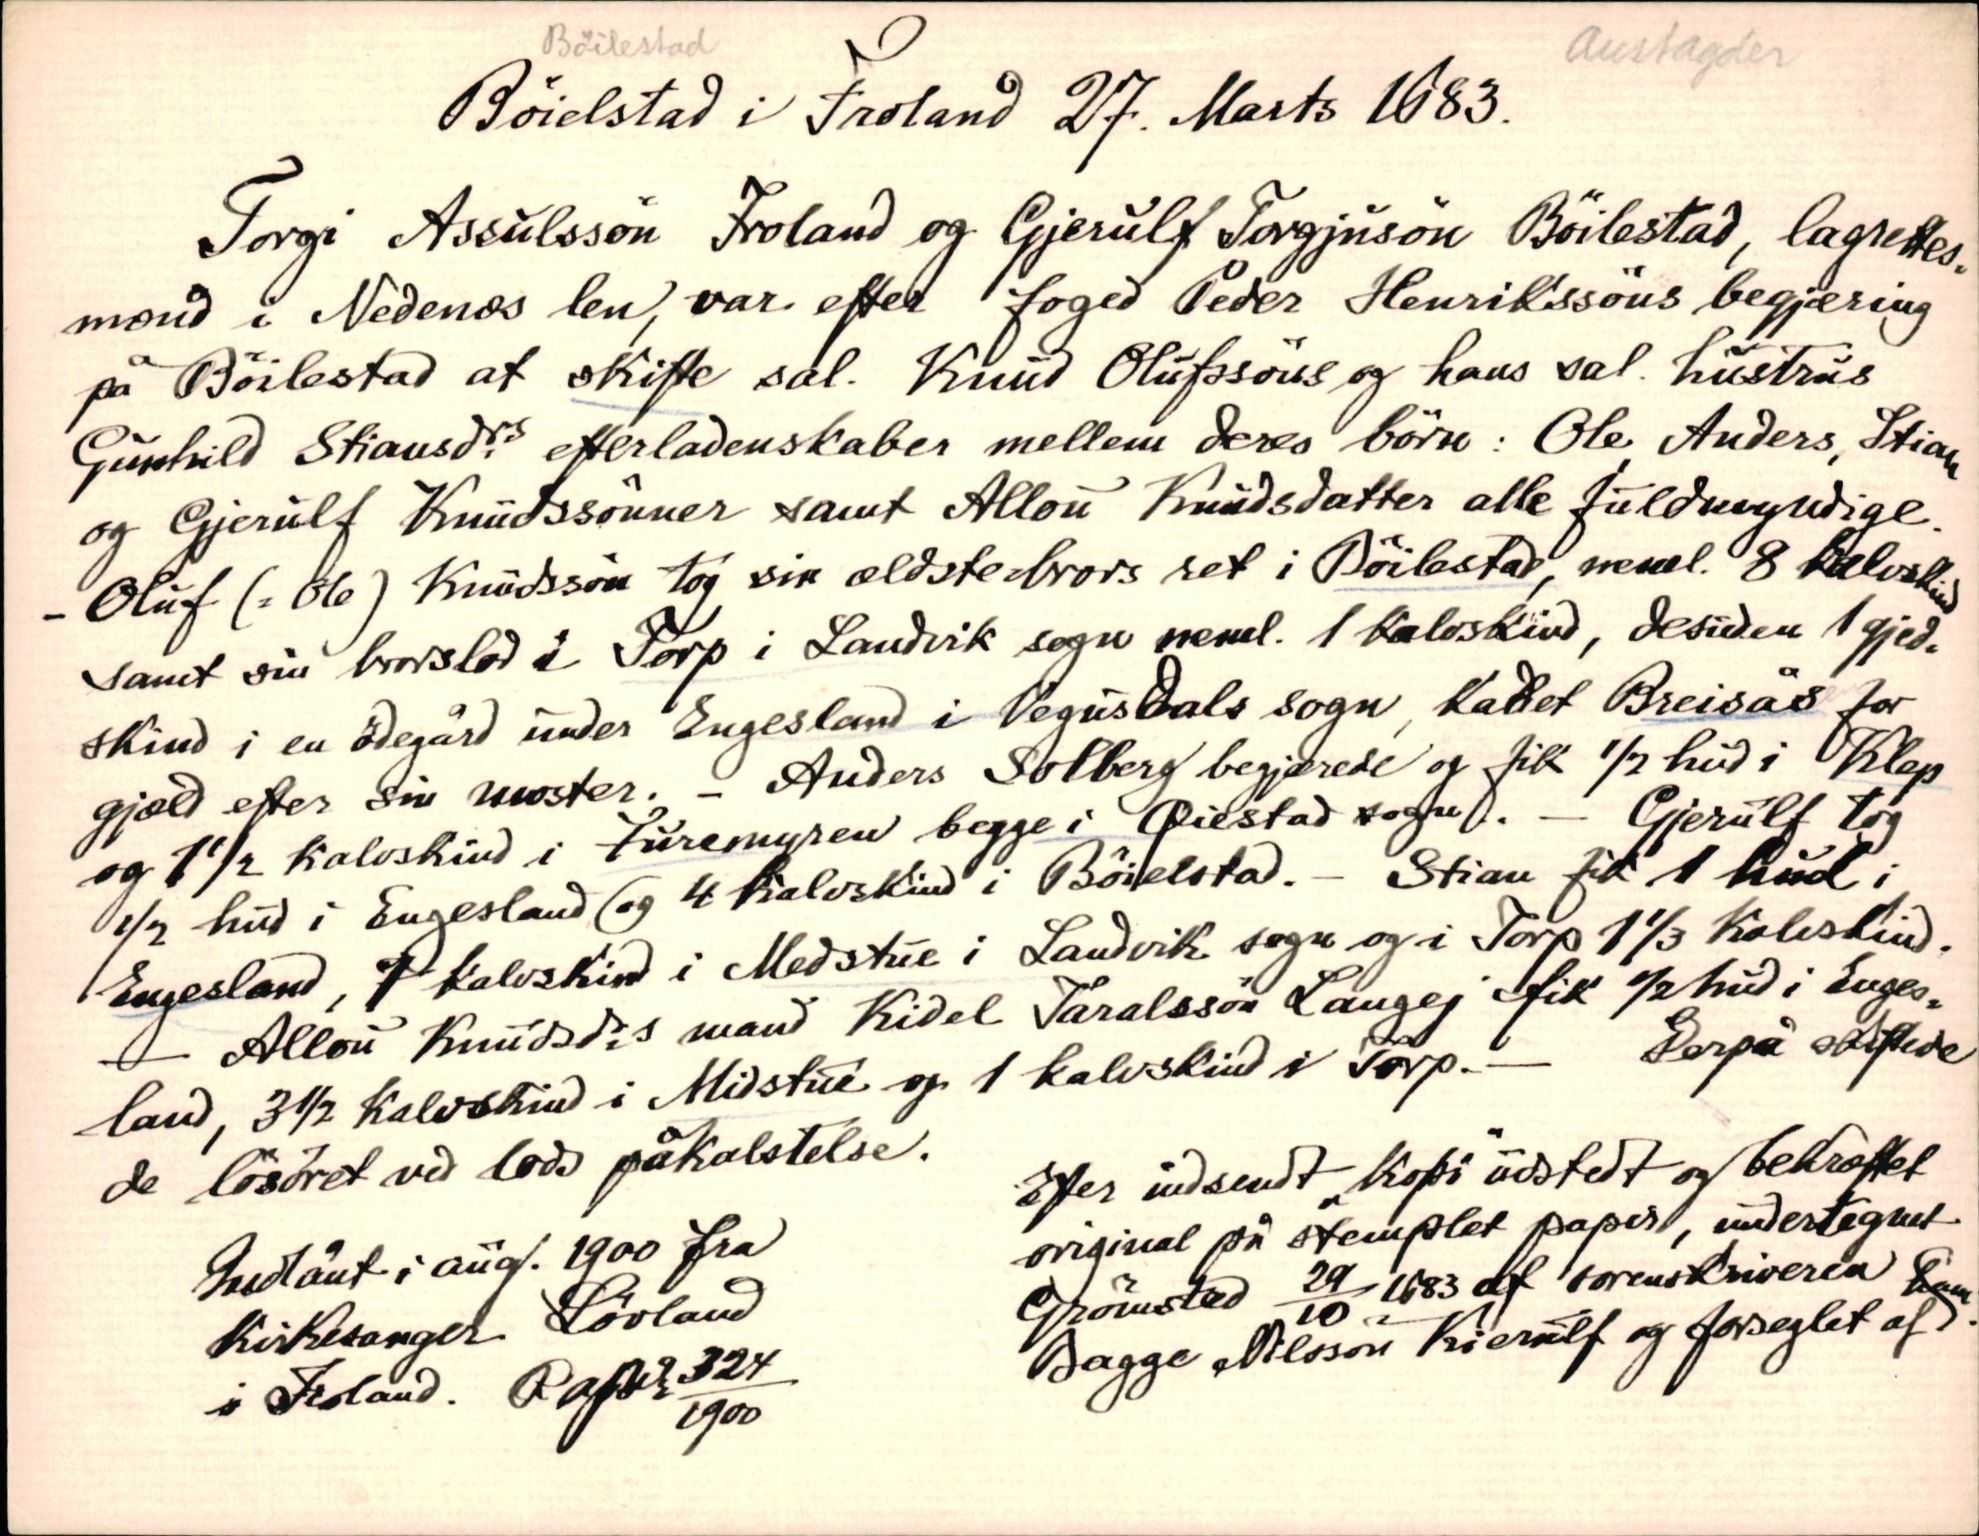 Böilestad
Austagder
Böielstad i Froland 27. Marts 1683.
Torgi Assulssön Froland og Gjerulf Torgjusön Böilestad, lagrettes-
mænd i Nedenæs len, var efter foged Peder Henrikssöns begjæring
på Böilestad at skifte sal. Knud Olufssöns og hans sal. hustrus
Gunhild Stiansdrs efterladenskaber mellem deres börn: Ole, Anders, Stian
og Gjerulf Knudssönner samt Allou Knudsdatter alle fuldmyndige.
- Oluf (= Ole) Knudssön tog sin ældste brors ret i Böilestad, neml. 8 kalvskind
samt sin brorslod i Torp i Landvik sogn neml. 1 kalvskind, desuden 1 gjed-
skind i en ödegård under Engesland i Vegusdals sogn, kaldet Breisås for
gjæld efter sin moster. - Anders Solberg begjærede og fik 1/2 hud i Klep
og 1 1/2 kalvskind i Furemyren begge i Øiestad sogn. - Gjerulf tog
1/2 hud i Engesland og 4 kalvskind i Böielstad. - Stian fik 1 hud i
Engesland, 1 kalvskind i Medstue i Landvik sogn og i Torp 1 1/3 kalvskind.
- Allou Knudsdrs mand Kidel Taralssön Langej fik 1/2 hud i Enges-
land, 3 1/2 kalvskind i Midstue og 1 kalvskind i Torp. - Derpå skiftede
de lösöret ved lods påkalstelse.
Indlånt i aug. 1900 fra
kirkesanger Lövland
i Froland. Papir 324/1900
Efter indsendt kopi udstedt og bekræftet
original på stemplet papir, undertegnet
Grömsted 29/10 1683 af sorenskriveren
Bagge Nilssön Kierulf og forseglet af